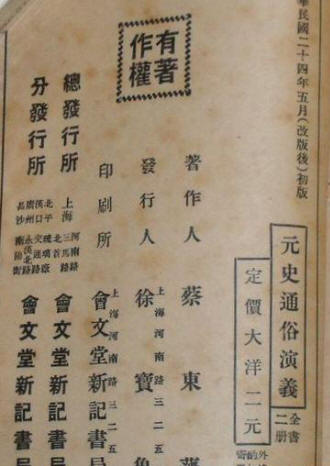 華民國二十四年五月(改版後)初版
元史通俗演義
全書二册
定價大洋二元
外
著作人 蔡東
發行人 徐寶
上海河南路三二五
印刷所 會文堂新記書
上海河南路三二五
總發行所 上海 河南路 三馬路 會文堂新記書局
分發行所 北平 漢口 廣州 長沙 會文堂新記書局
有著作權